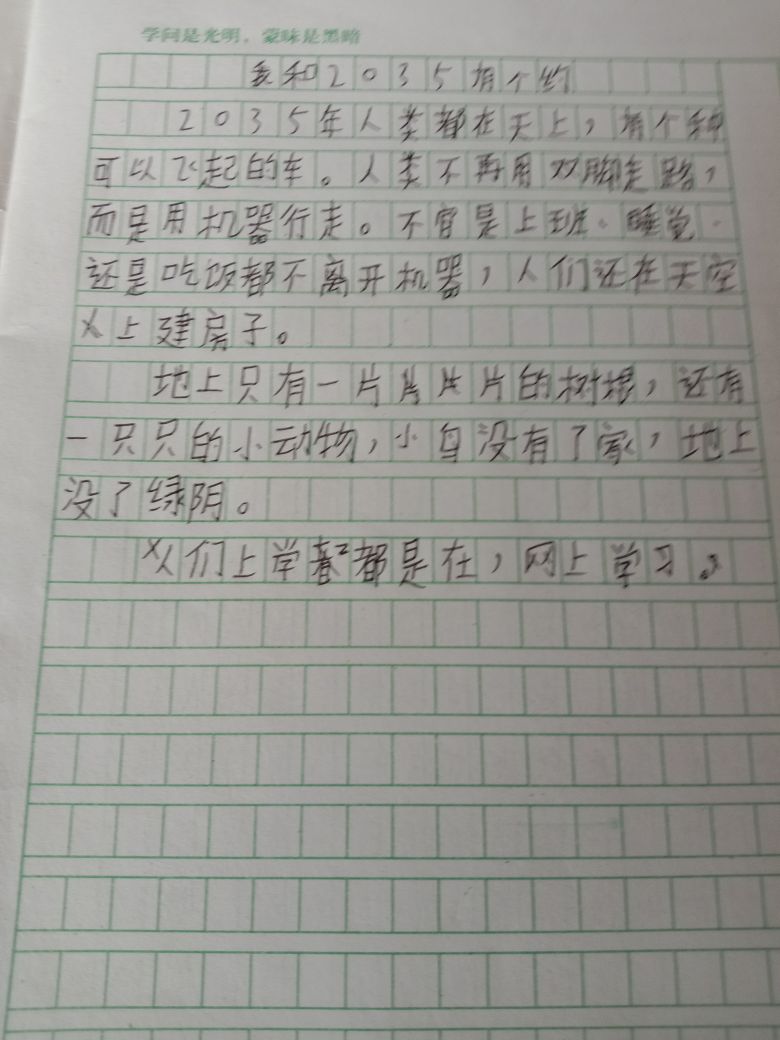 学问是光明，蒙昧是黑暗
我和2035有个约
2035年人类都在天上，有个种
可以飞起的车。人类不再用双脚走路，
而是用机器行走。不管是上班、睡觉、
还是吃饭都不离开机器，人们还在天空
上建房子。
地上只有一片片片片的树根，还有
一只只的小动物，小鸟没有了家，地上
没了绿阴。
人们上学都是在，网上学习。